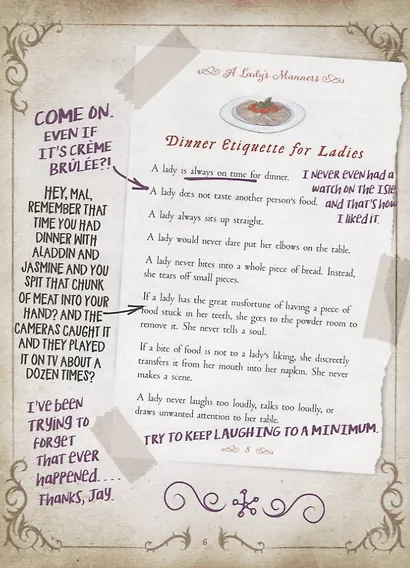 A Lady's Manners
Dinner Etiquette for Ladies
A lady is always on time for dinner.
I NEVER EVEN HAD A
WATCH ON THE ISLE
AND THAT'S HOW
I LIKED IT.
COME ON.
EVEN IF
IT'S CRÈME
BRÛLÉE?!
A lady does not taste another person's food.
A lady always sits up straight.
A lady would never dare put her elbows on the table.
A lady never bites into a whole piece of bread. Instead,
she tears off small pieces.
HEY, MAL,
REMEMBER THAT
TIME YOU HAD
DINNER WITH
ALADDIN AND
JASMINE AND YOU
SPIT THAT CHUNK
OF MEAT INTO YOUR
HAND? AND THE
CAMERAS CAUGHT IT
AND THEY PLAYED
IT ON TV ABOUT A
DOZEN TIMES?
If a lady has the great misfortune of having a piece of
food stuck in her teeth, she goes to the powder room to
remove it. She never tells a soul.
If a bite of food is not to a lady's liking, she discreetly
transfers it from her mouth into her napkin. She never
makes a scene.
I'VE BEEN
TRYING TO
FORGET
THAT EVER
HAPPENED. . . .
THANKS, JAY.
A lady never laughs too loudly, talks too loudly, or
draws unwanted attention to her table.
TRY TO KEEP LAUGHING TO A MINIMUM.
8
6